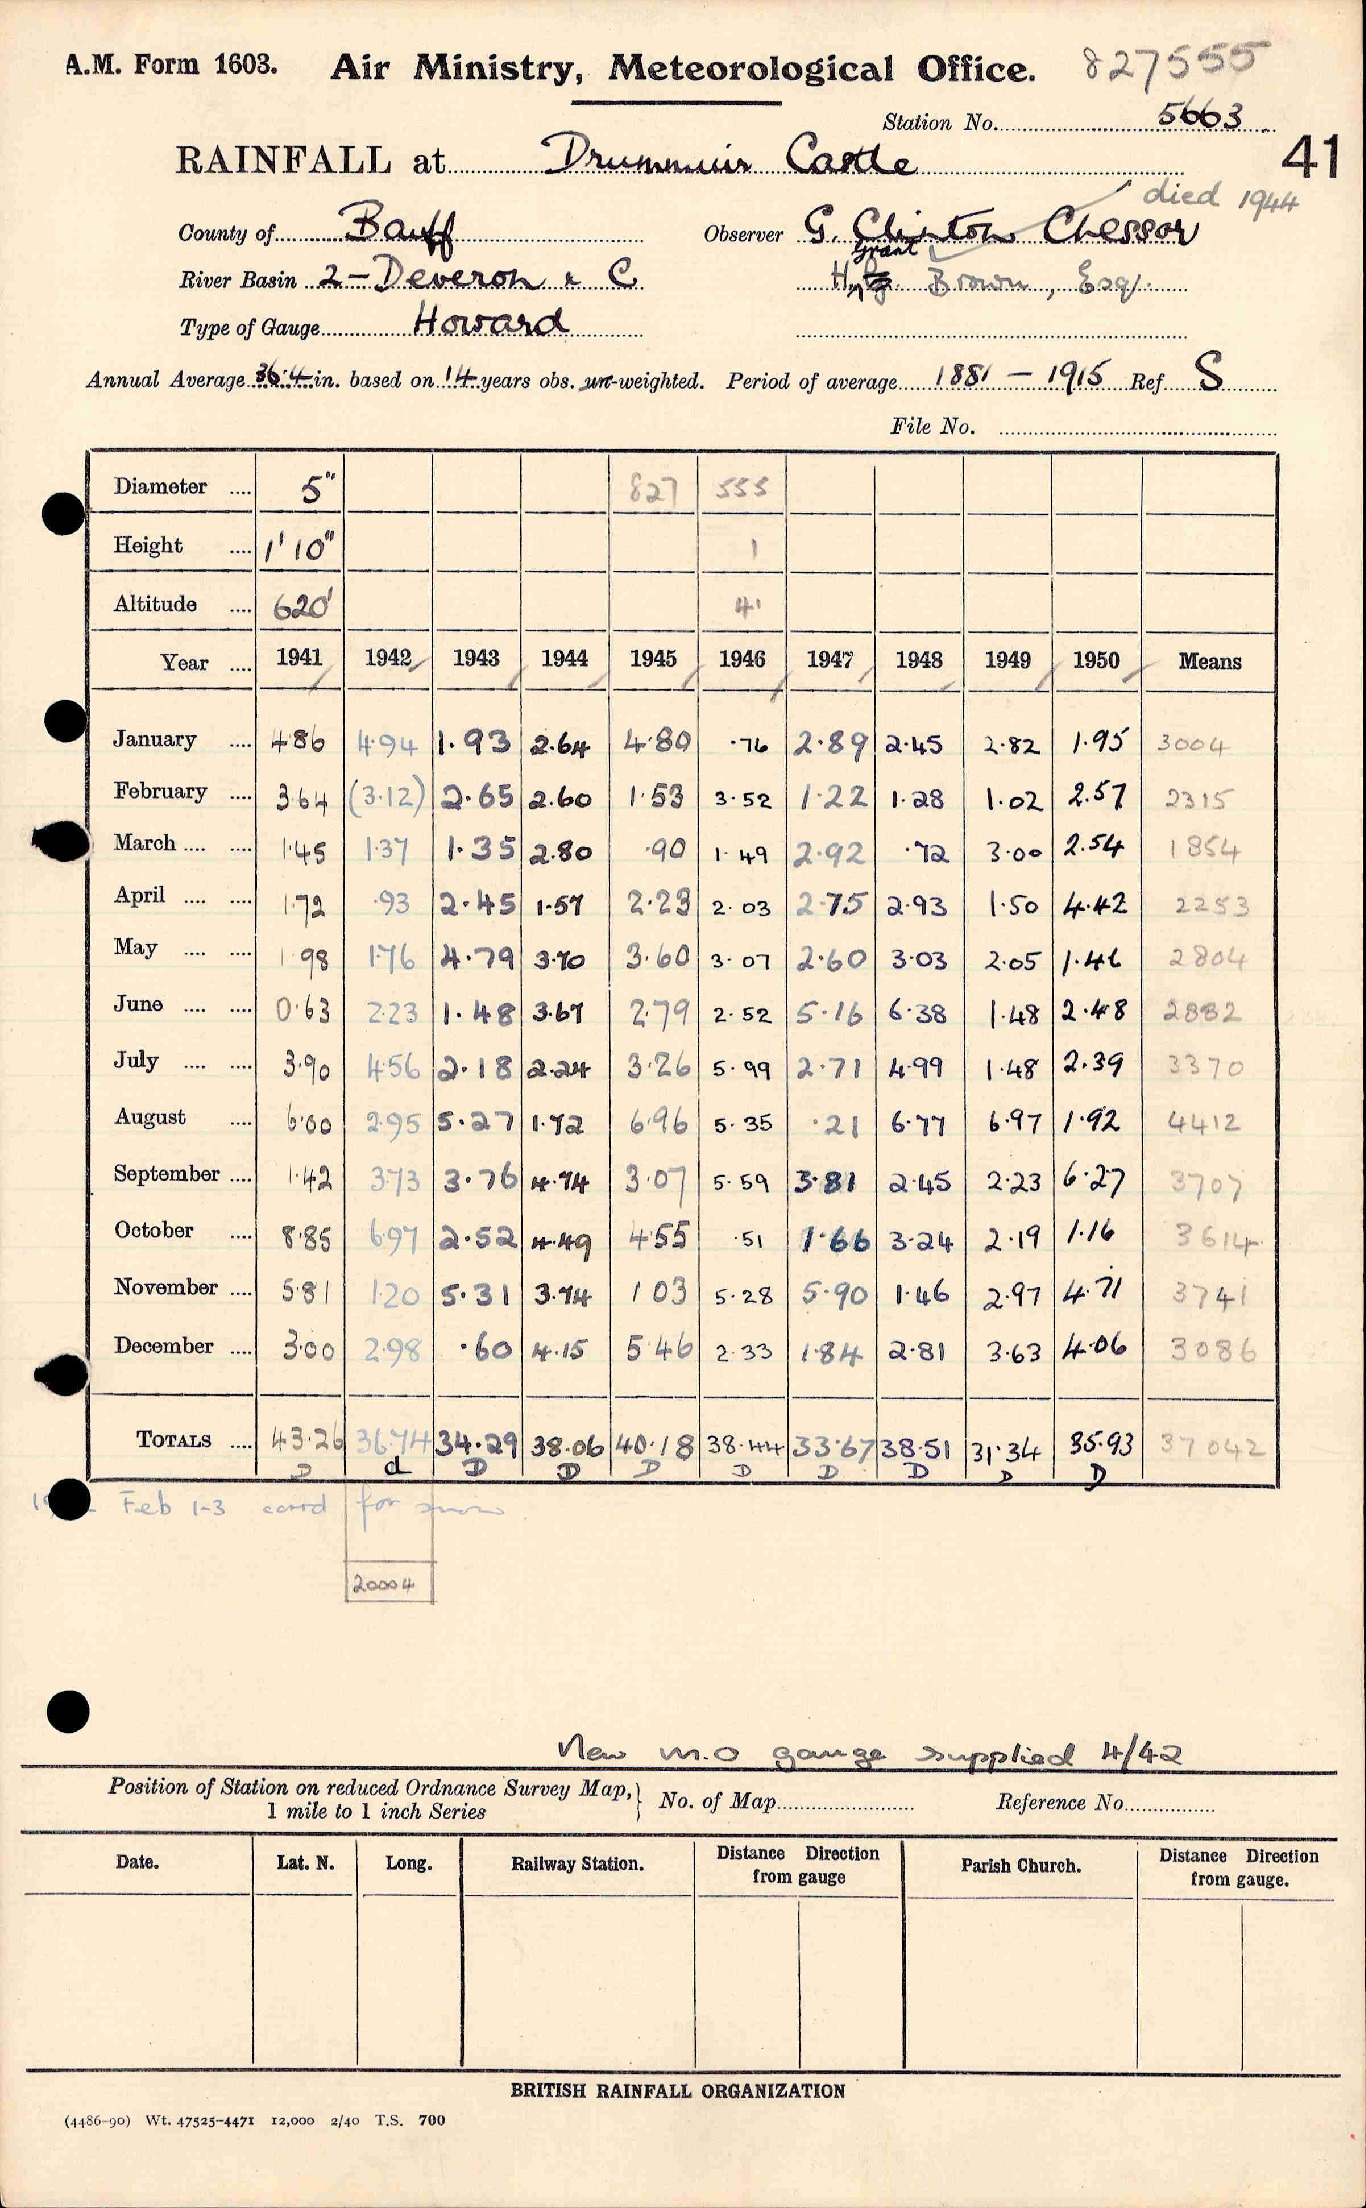 A.M. Form 1603. Air Ministry, Meteorological Office. 827555
Station No. 5663
RAINFALL at Drummuir Castle 41
died 1944
County of Banff Observer G. Clinton Chessor
Grant
River Basin 2 - Deveron & C H. Brown, Esq.
Type of Gauge Howard
Annual Average 36.4 in. based on 14 years obs. un-weighted. Period of average 1881 - 1915 Ref. S
File No.
Diameter .... 5" 827 555
Height .... 1' 10" 1
Altitude .... 620' 41
Year .... 1941 1942 1943 1944 1945 1946 1947 1948 1949 1950 Means
January .... 4.86 4.94 1.93 2.64 4.80 .76 2.89 2.45 2.82 1.95 3004
February .... 3.64 (3.12) 2.65 2.60 1.53 3.52 1.22 1.28 1.02 2.57 2315
March .... .... 1.45 1.37 1.35 2.80 .90 1.49 2.92 .72 3.00 2.54 1854
April .... .... 1.72 .93 2.45 1.57 2.23 2.03 2.75 2.93 1.50 4.42 2253
May .... .... 1.98 1.76 4.79 3.70 3.60 3.07 2.60 3.03 2.05 1.46 2804
June .... .... 0.63 2.23 1.48 3.67 2.79 2.52 5.16 6.38 1.48 2.48 2882
July .... .... 3.90 4.56 2.18 2.24 3.26 5.99 2.71 4.99 1.48 2.39 3370
August .... 6.00 2.95 5.27 1.72 6.96 5.35 .21 6.77 6.97 1.92 4412
September .... 1.42 3.73 3.76 4.74 3.07 5.59 3.81 2.45 2.23 6.27 3707
October .... 8.85 6.97 2.52 4.49 4.55 .51 1.66 3.24 2.19 1.16 3614
November .... 5.81 1.20 5.31 3.74 1.03 5.28 5.90 1.46 2.97 4.71 3741
December .... 3.00 2.98 .60 4.15 5.46 2.33 1.84 2.81 3.63 4.06 3086
TOTALS .... 43.26 36.74 34.29 38.06 40.18 38.44 33.67 38.51 31.34 35.93 37042
D d D D D D D D D D
Feb 1-3 corrd for snow
20004
New M.O gauge supplied 4/42
Position of Station on reduced Ordnance Survey Map,
1 mile to 1 inch Series } No. of Map Reference No.
Date. Lat. N. Long. Railway Station. Distance Direction from gauge Parish Church. Distance Direction from gauge.
BRITISH RAINFALL ORGANIZATION
(4486-90) Wt. 47525-4471 12,000 2/40 T.S. 700